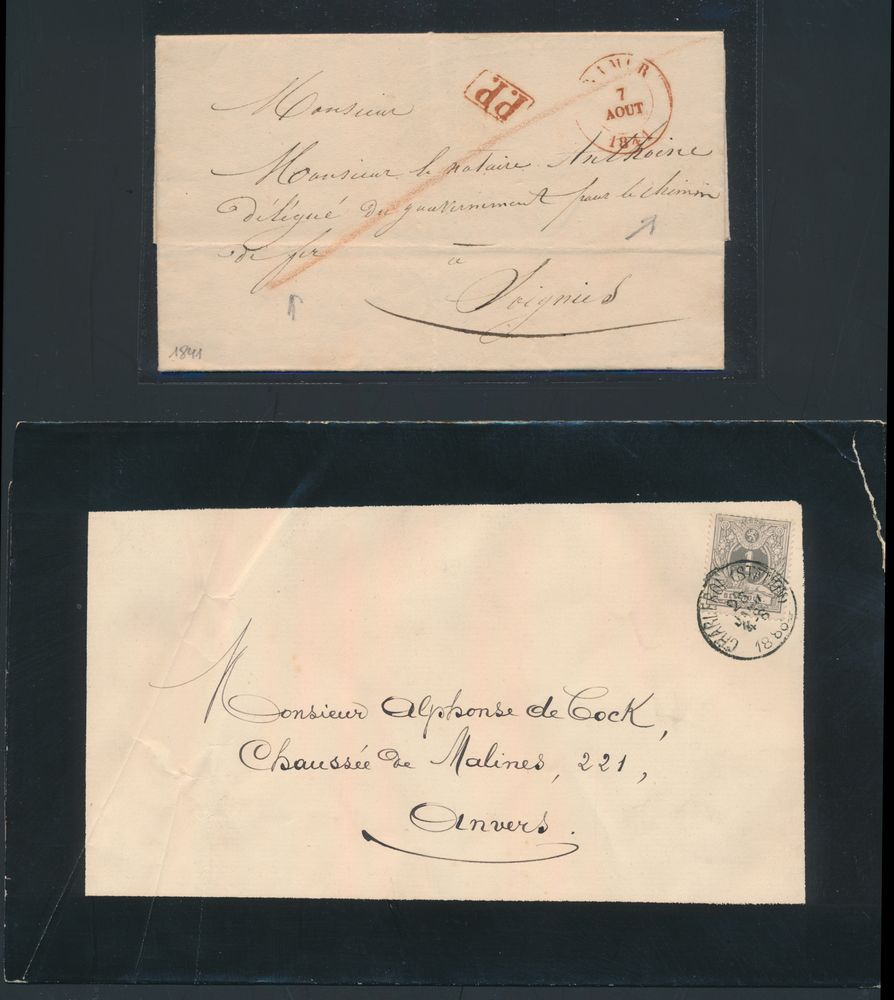 P.P.
NAMUR
7
AOUT
1841
Monsieur
Monsieur le notaire Anthoine
délégué du gouvernement pour le chemin
de fer à
Soignies
1841
1
CHARLEROI (STATION)
1886
Monsieur Alphonse de Cock,
Chaussée de Malines, 221,
Anvers.